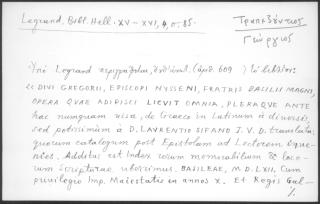 Legrand, Bibl. Hell. XV-XVI, 4, σ. 85.
Τραπεζούντιος
Γεώργιος
Ὑπὸ Legrand περιγράφεται, (ἀριθ. 609) τὸ βιβλίον:
« DIVI GREGORII, EPISCOPI NYSSENI, FRATRIS BASILII MAGNI,
OPERA QVAE ADIPISCI LICVIT OMNIA, PLERAQVE ANTE
hac nunquam visa, de Graeco in Latinum à diversis,
sed potissimùm à D. LAVRENTIO SIFANO I.V.D. translata,
quorum catalogum post Epistolam ad Lectorem inve-
nies. Additus est Index rerum memorabilium & loco-
rum Scripturae uberrimus. BASILEAE, M.D.LXII, Cum
privilegio Imp. Maiestatis in annos X. Et Regis Gal-
%